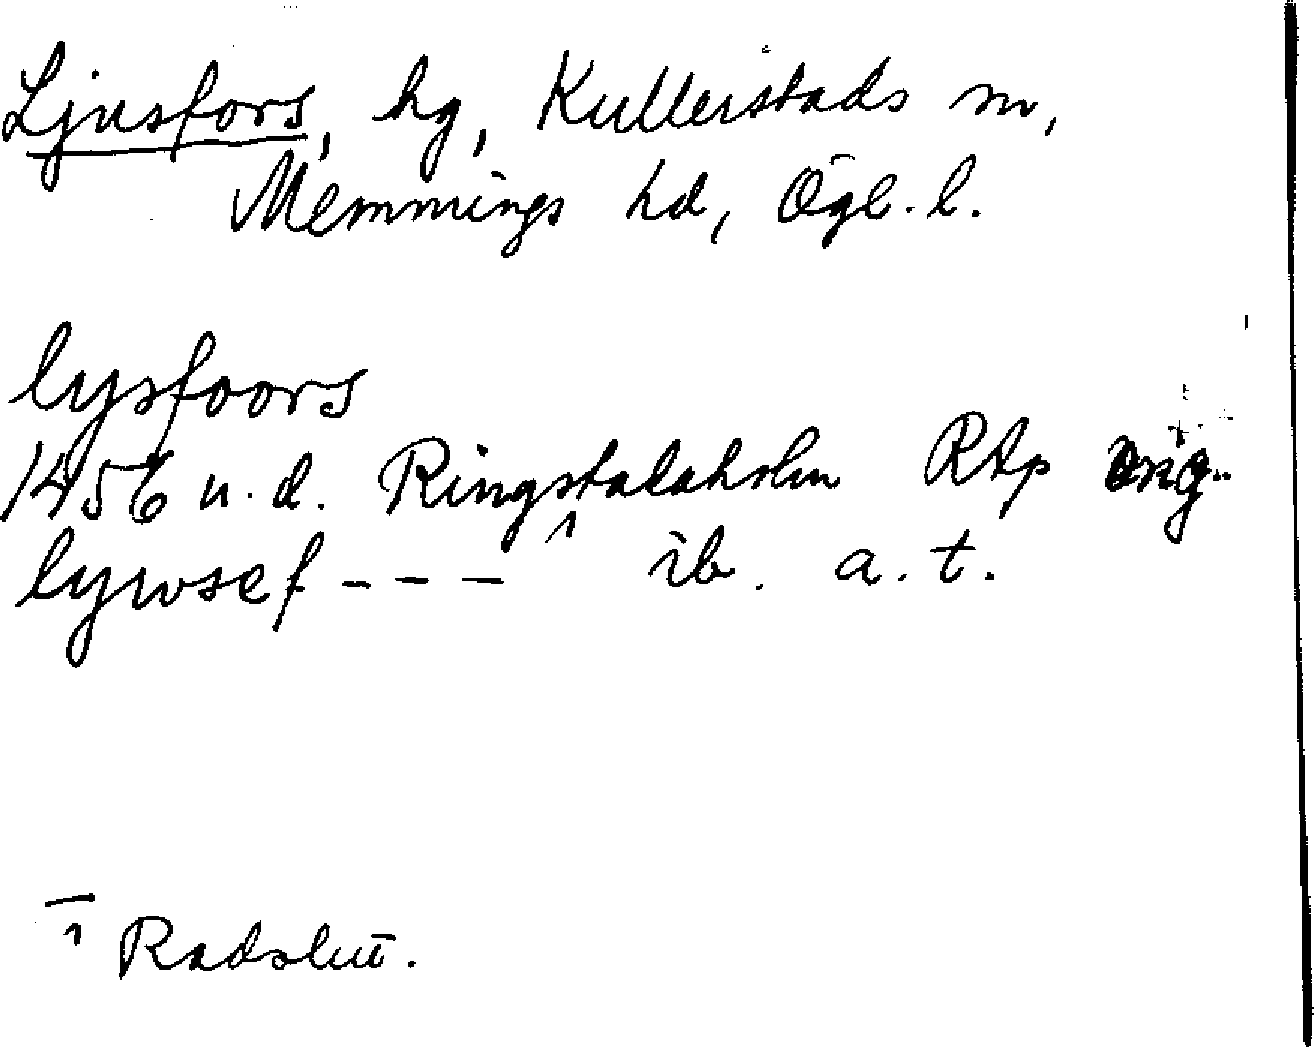 Ljusfors, hg, Kullerstads sn,
Memmings hd, Ögl. l.
lysfoors
1456 u. d. Ringstadaholm Rtp orig.
lywsef - - - 1 ib. a. t.
1 Radslut.